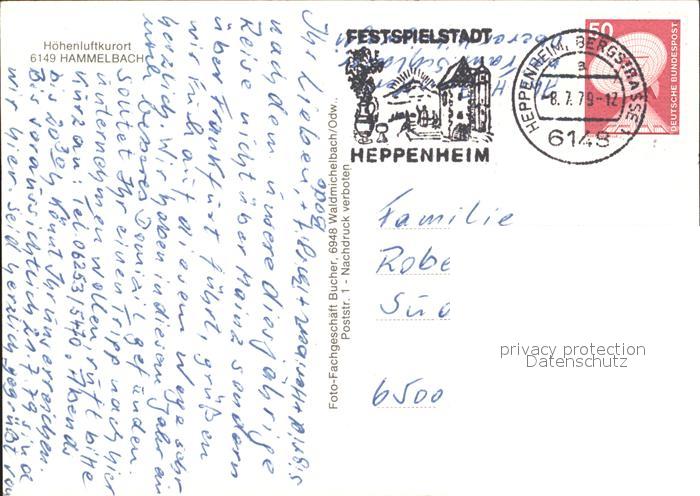 Höhenluftkurort
6149 HAMMELBACH
FESTSPIELSTADT
HEPPENHEIM
HEPPENHEIM, BERGSTRASSE 1
a
-8.7.79-12
6148
50
DEUTSCHE BUNDESPOST
Foto-Fachgeschäft Bucher, 6948 Waldmichelbach/Odw.,
Poststr. 1 - Nachdruck verboten
Ihr Lieben,
nachdem unsere diesjährige
Reise nicht über Mainz sondern
über Frankfurt führt, grüßen
wir Euch auf diesem Wege sehr
herzlich. Wir haben in diesem Jahr ein
noch besseres Domizil gefunden.
Solltet Ihr einen Tripp nach hier
unternehmen wollen, ruft bitte
kurz an: Tel. 06253/5470. Abends
bis 20.30 h könnt Ihr uns erreichen.
Bis voraussichtlich 21.7.79 sind
wir hier. Seid herzlich gegrüßt von
Familie
Robe
Süd
6500
privacy protection
Datenschutz